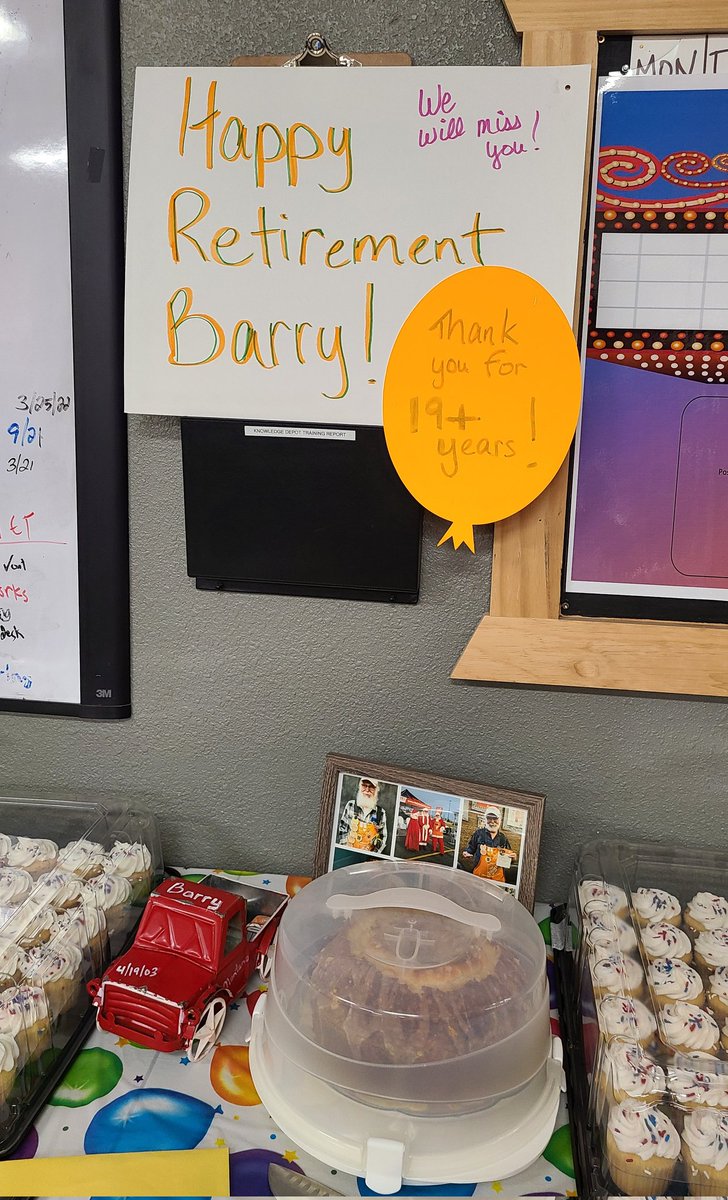 Happy
Retirement
Barry!
We
will miss
you!
Thank
you for
19+
years!
KNOWLEDGE DEPOT TRAINING REPORT
MON
3/25/22
9/21
3/21
3M
Barry
4/19/03